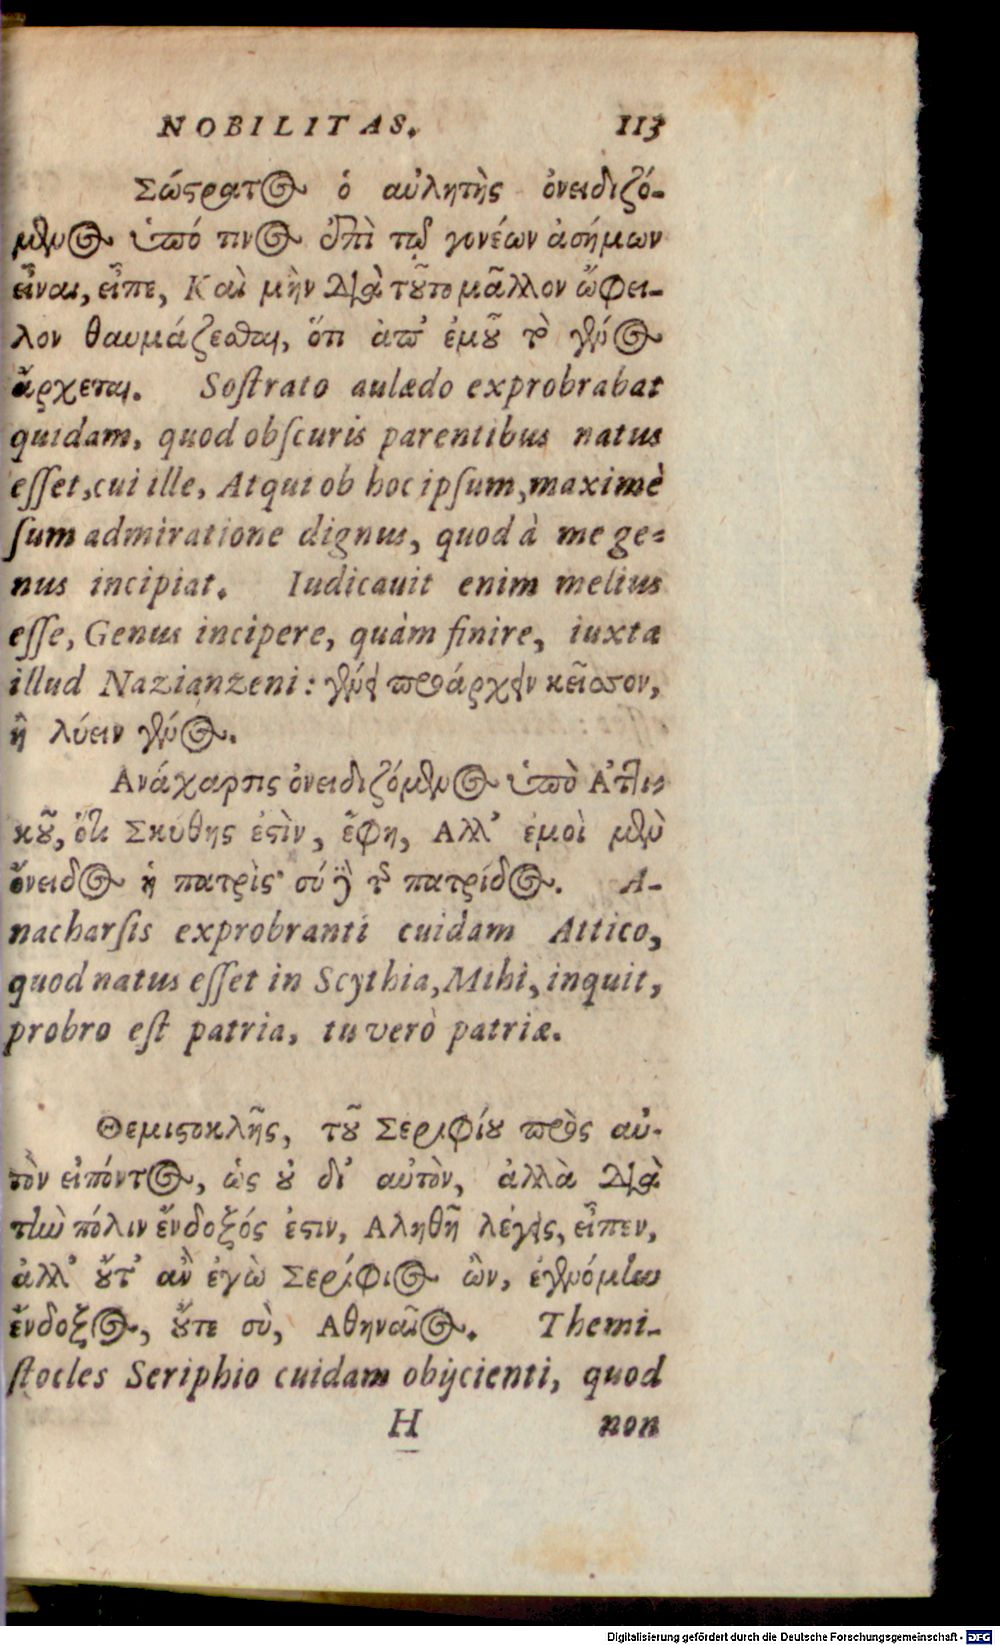 NOBILITAS. 113
Σώστρατος ὁ αὐλητὴς ὀνειδιζό-
μενος ὑπό τινος ἐπὶ τῷ γονέων ἀσήμων
εἶναι, εἶπε, Καὶ μὴν διὰ τοῦτο μᾶλλον ὤφει-
λον θαυμάζεσθαι, ὅτι ἀπ' ἐμοῦ τὸ γένος
ἄρχεται. Soſtrato aulædo exprobrabat
quidam, quod obſcuris parentibus natus
eſſet, cui ille, Atqui ob hoc ipſum, maximè
ſum admiratione dignus, quod à me ge-
nus incipiat. Iudicauit enim melius
eſſe, Genus incipere, quàm finire, iuxta
illud Nazianzeni: γένει προάρχειν κεῖσσον,
ἢ λύειν γένος.
Ανάχαρσις ὀνειδιζόμενος ὑπὸ Ἀττι-
κοῦ, ὅτι Σκύθης ἐστὶν, ἔφη, Αλλ' ἐμοὶ μὲν
ὄνειδος ἡ πατρὶς· σύ δὲ τῆς πατρίδος. A-
nacharſis exprobranti cuidam Attico,
quod natus eſſet in Scythia, Mihi, inquit,
probro eſt patria, tu verò patriæ.
Θεμιστοκλῆς, τοῦ Σεριφίου πρὸς αὐ-
τὸν εἰπόντος, ὡς οὐ δι' αὐτὸν, ἀλλὰ διὰ
τὴν πόλιν ἔνδοξός ἐστιν, Αληθῆ λέγεις, εἶπεν,
ἀλλ' οὔτ' ἂν ἐγὼ Σερίφιος ὢν, ἐγενόμην
ἔνδοξος, οὔτε σὺ, Αθηναῖος. Themi-
ſtocles Seriphio cuidam obijcienti, quod
H non
Digitalisierung gefördert durch die Deutsche Forschungsgemeinschaft - DFG